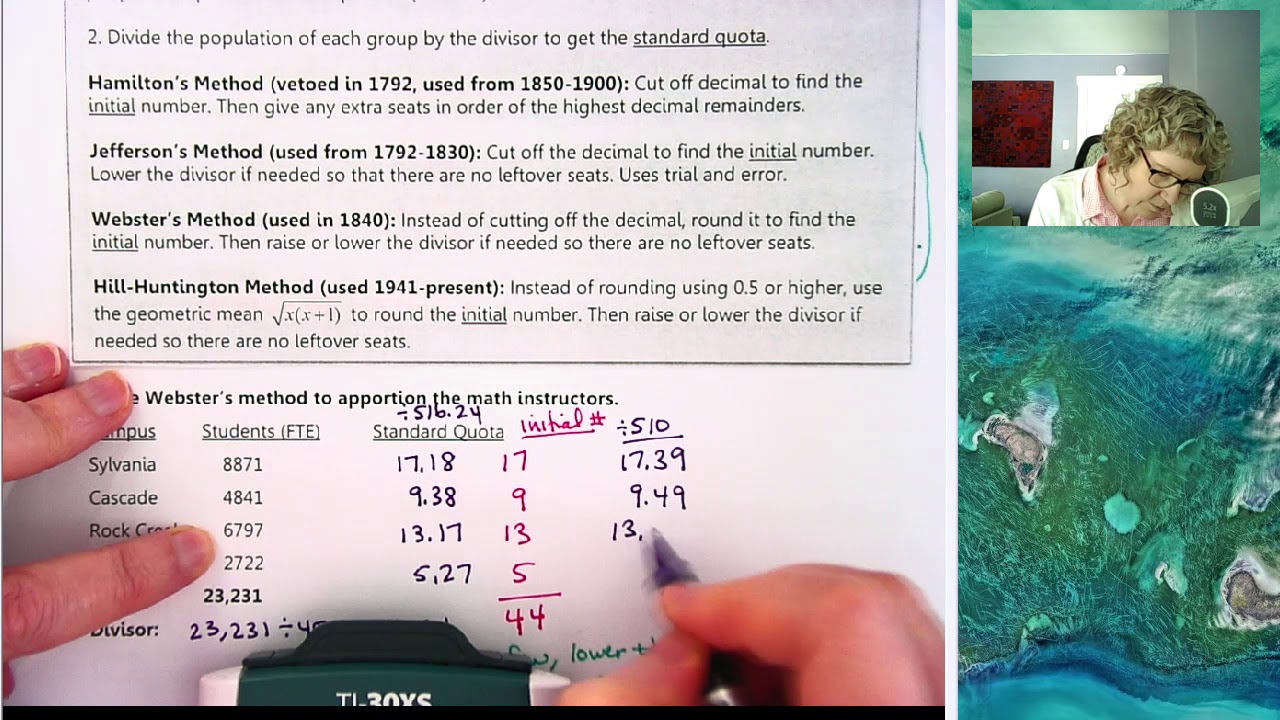 2. Divide the population of each group by the divisor to get the standard quota.
Hamilton's Method (vetoed in 1792, used from 1850-1900): Cut off decimal to find the
initial number. Then give any extra seats in order of the highest decimal remainders.
Jefferson's Method (used from 1792-1830): Cut off the decimal to find the initial number.
Lower the divisor if needed so that there are no leftover seats. Uses trial and error.
Webster's Method (used in 1840): Instead of cutting off the decimal, round it to find the
initial number. Then raise or lower the divisor if needed so there are no leftover seats.
Hill-Huntington Method (used 1941-present): Instead of rounding using 0.5 or higher, use
the geometric mean √x(x+1) to round the initial number. Then raise or lower the divisor if
needed so there are no leftover seats.
Webster's method to apportion the math instructors.
÷516.24
Students (FTE) Standard Quota initial # ÷510
Sylvania 8871 17.18 17 17.39
Cascade 4841 9.38 9 9.49
Rock 6797 13.17 13 13.
2722 5.27 5
23,231
44
Divisor: 23,231 ÷
lower
TI-30XS